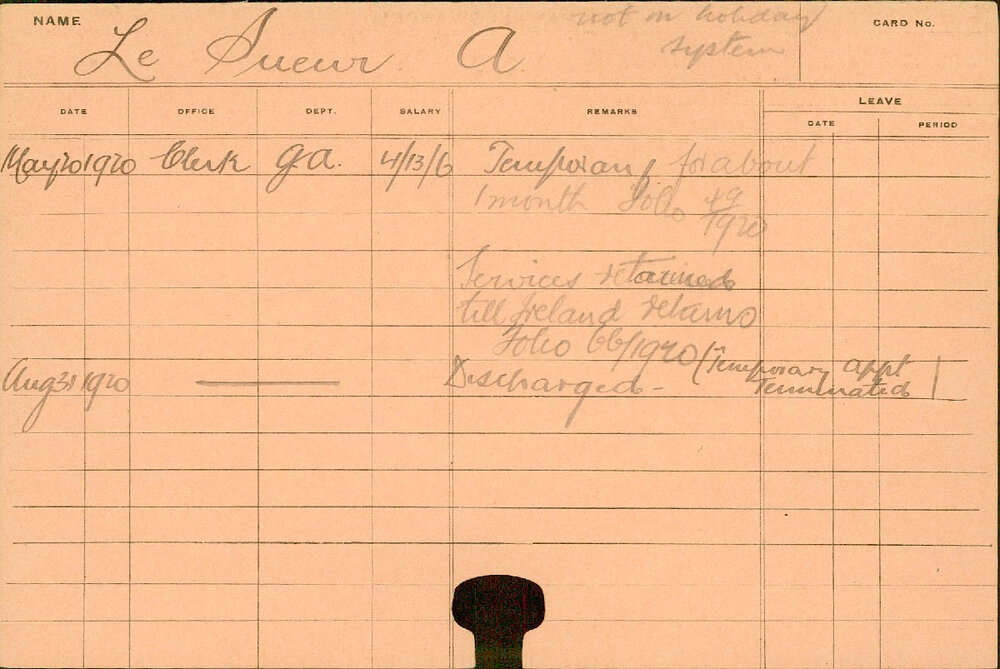 NAME Le Sueur. A not on holiday system CARD No.
DATE OFFICE DEPT. SALARY REMARKS LEAVE
DATE PERIOD
May 20 1920 Clerk G.A. 4/13/6 Temporary for about
1 month Folio 49/1920
Services retained
till Ireland returns
Folio 66/1920
Aug 31 1920 Discharged - (Temporary appt
Terminated)